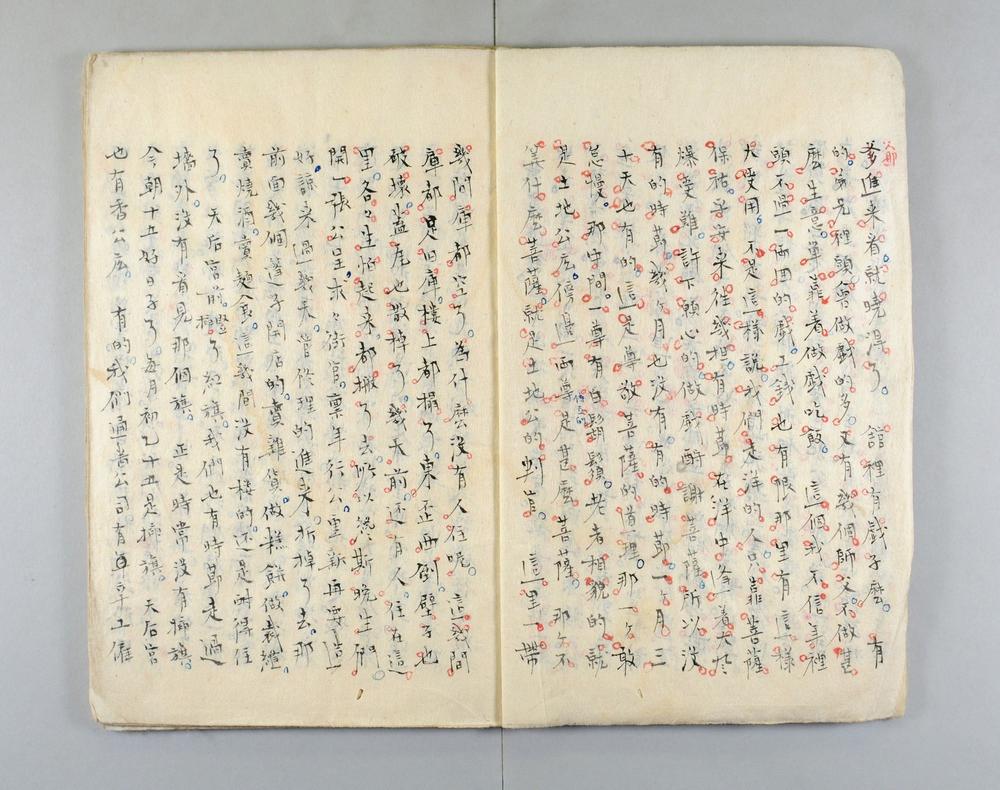 爹進來看就曉得了 館裡有戲子麼 有
的弟兄裡頭會做戲的多 又有幾個師父不做甚
麼生意單靠着做戲吃飯 這個我不信算裡
頭不過一兩四的戲工錢也有限那里有這樣
大受用 不是這樣說我們走洋的人只靠菩薩
保祐平安來徃幾担有時莭在洋中逢着大風
爆受難許下願心的做戲酧謝菩薩所以沒
有的時莭幾ケ月也沒有有的時莭一ケ月三
十天也有的這是尊敬菩薩的道理那一ケ敢
怠慢 那中間一尊有白鬍鬚老者相貌的就
是土地公広傍邊兩尊是甚麼菩薩 那ケ不
算什麼菩薩就是土地公的判官 這里一帶
幾間庫都空了為什麼沒有人住呢 這幾間
庫都是旧庫樓上都攤了東歪西倒壁子也
破壞盖雇也散掉了幾天前还有人住在這
里各々生怕起來都搬了去所以於斯晚生們
開一張公呈求々街官稟年行公里新再要造
好諒來過幾天管修理的進來折掉了去那
前面幾個篷子開店的賣雜貨做糕餅做裁縫
賣燒酒賣麵食這幾間沒有樓的还是耐得住
了 天后宮前樹了紅旗我們也有時莭走過
墻外沒有看見那個旗 正是時常沒有掛旗
今朝十五好日子了每月初乙十五是掛旗 天后宮
也有香公広 有的我們通着公司有三十五僱